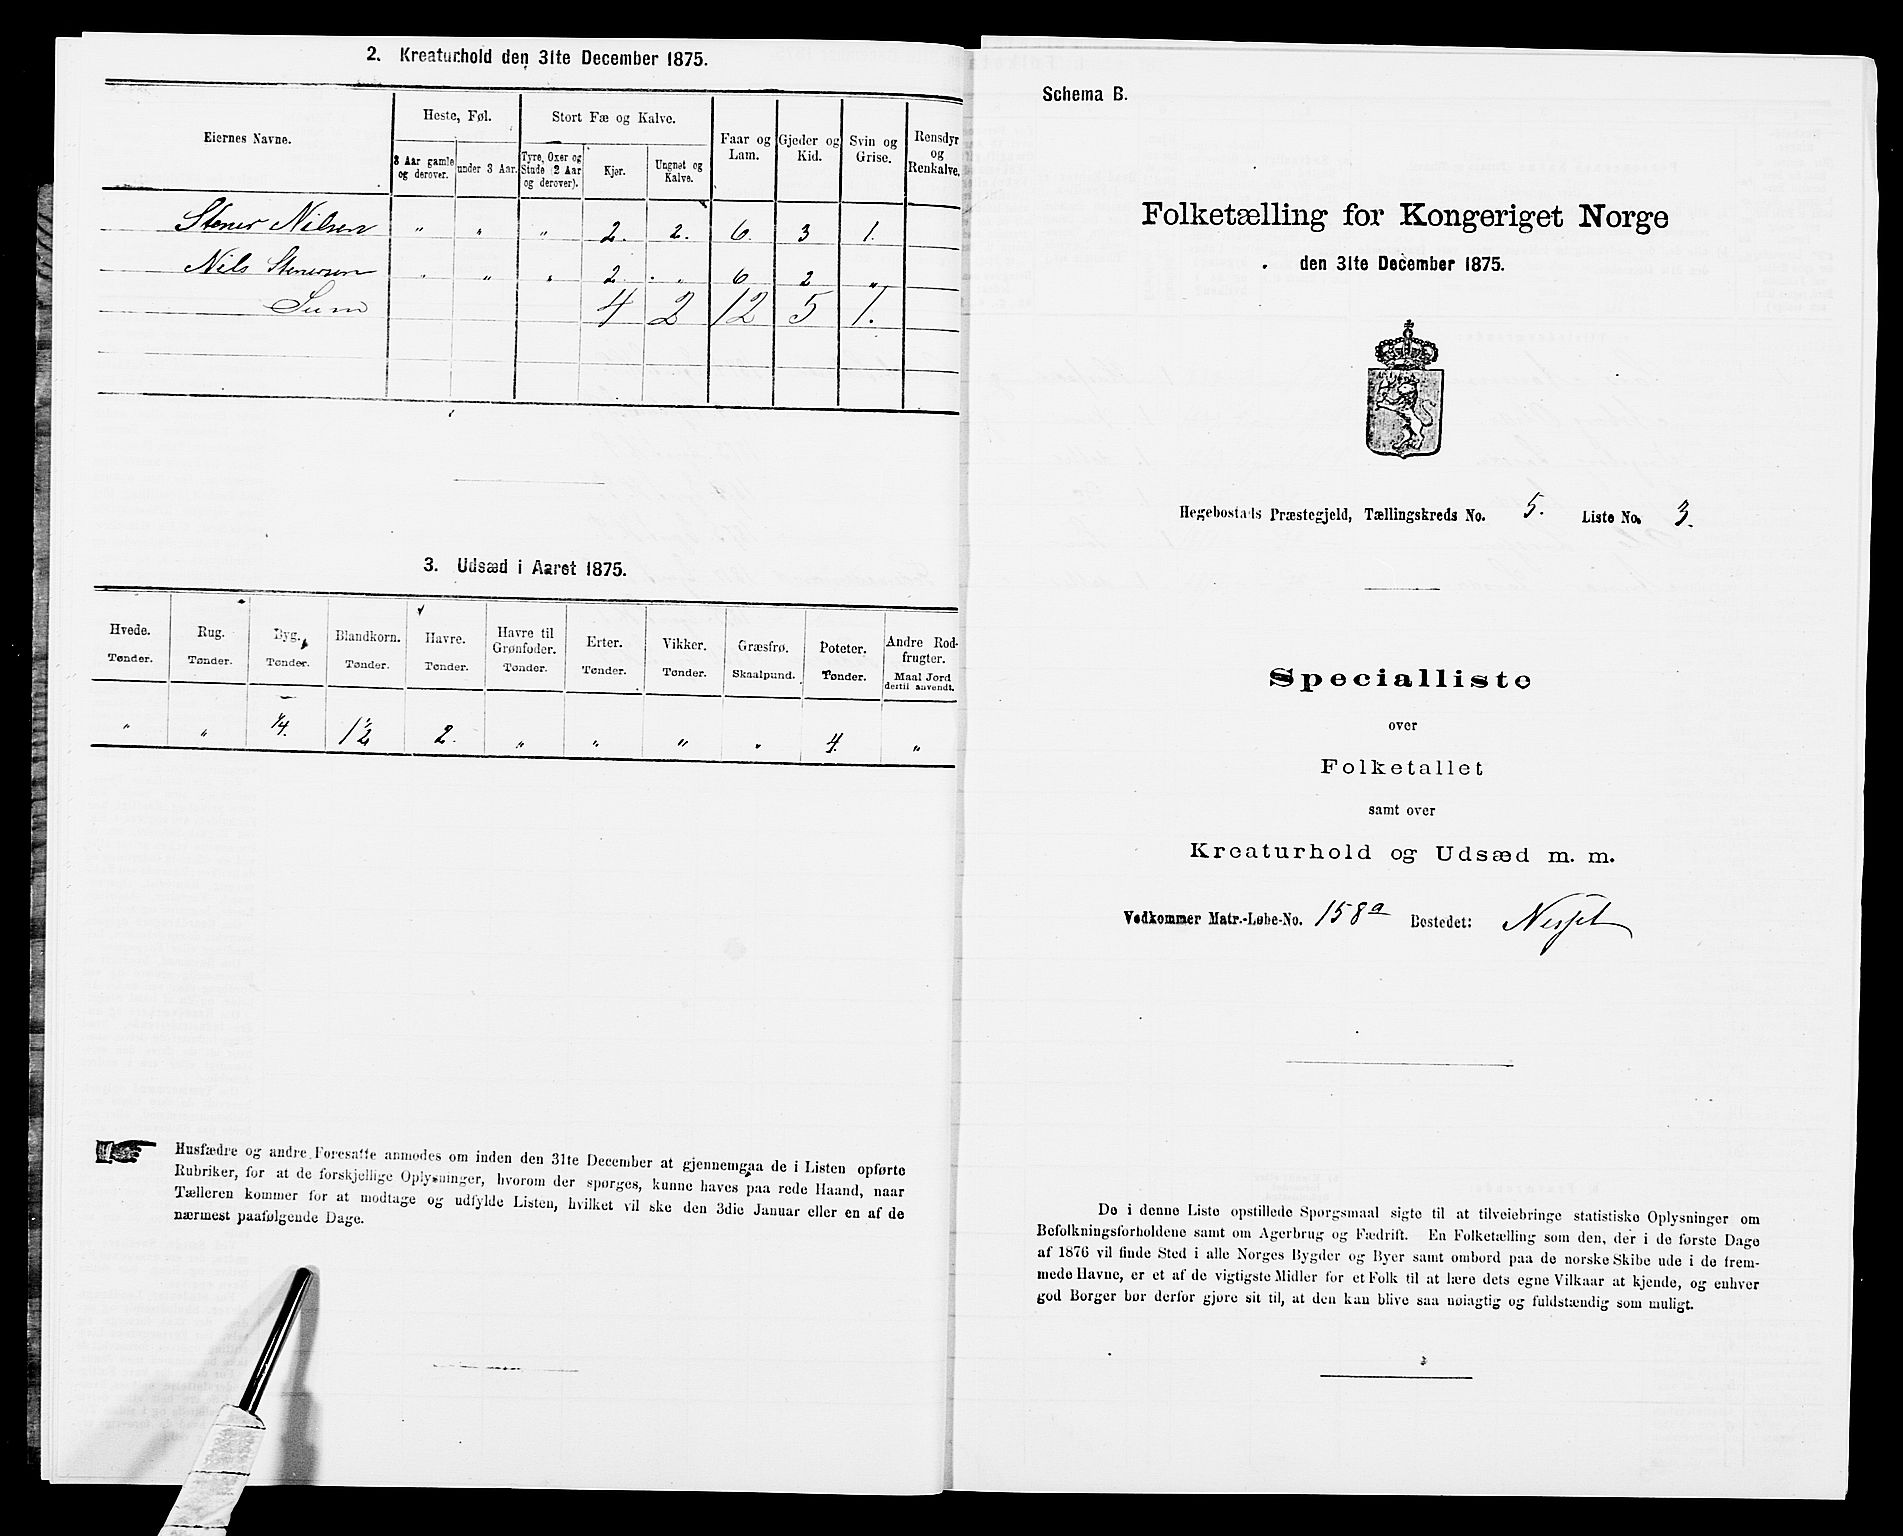 2. Kreaturhold den 31te December 1875.
Eiernes Navne.
Heste, Føl.
Stort Fæ og Kalve.
Faar og Lam.
Gjeder og Kid.
Svin og Grise.
Rensdyr og Renkalve.
3 Aar gamle og derover.
under 3 Aar.
Tyre, Oxer og Stude (2 Aar og derover).
Kjør.
Ungnøt og Kalve.
Stener Nilsen " " " 2. 2. 6. 3 1.
Nils Stenersen " " " 2. " 6 2 "
Sum 4 2 12 5 1.
3. Udsæd i Aaret 1875.
Hvede. Rug. Byg. Blandkorn. Havre. Havre til Grønfoder. Erter. Vikker. Græsfrø. Poteter. Andre Rodfrugter.
Tønder. Tønder. Tønder. Tønder. Tønder. Tønder. Tønder. Tønder. Skaalpund. Tønder. Maal Jord dertil anvendt.
" " 1/4. 1 1/2 2. " " " " 4. "
Husfædre og andre Foresatte anmodes om inden den 31te December at gjennemgaa de i Listen opførte
Rubriker, for at de forskjellige Oplysninger, hvorom der spørges, kunne haves paa rede Haand, naar
Tælleren kommer for at modtage og udfylde Listen, hvilket vil ske den 3die Januar eller en af de
nærmest paafølgende Dage.
Schema B.
Folketælling for Kongeriget Norge
den 31te December 1875.
Hegebostads Præstegjeld, Tællingskreds No. 5. Liste No. 3.
Specialliste
over
Folketallet
samt over
Kreaturhold og Udsæd m. m.
Vedkommer Matr.-Løbe-No. 158a Bostedet: Nesset
De i denne Liste opstillede Spørgsmaal sigte til at tilveiebringe statistiske Oplysninger om
Befolkningsforholdene samt om Agerbrug og Fædrift. En Folketælling som den, der i de første Dage
af 1876 vil finde Sted i alle Norges Bygder og Byer samt ombord paa de norske Skibe ude i de frem-
mede Havne, er et af de vigtigste Midler for et Folk til at lære dets egne Vilkaar at kjende, og enhver
god Borger bør derfor gjøre sit til, at den kan blive saa nøiagtig og fuldstændig som muligt.